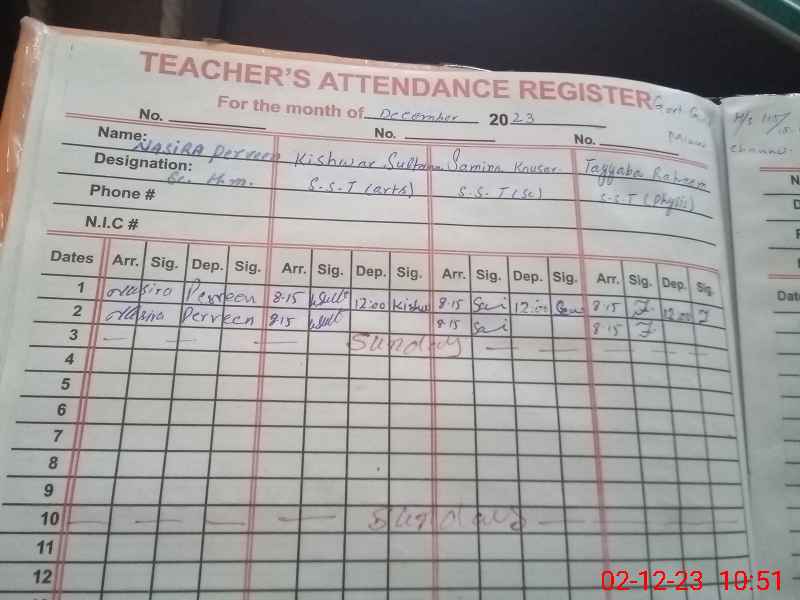 TEACHER'S ATTENDANCE REGISTER
For the month of December 2023
No. No. No.
Name: NASIRA Perveen Kishwar Sultana Samina Kausar Tayyaba Raheem
Designation: S.S.T (arts) S.S.T (Sc) S.S.T (Physic)
Phone #
N.I.C #
Dates Arr. Sig. Dep. Sig. Arr. Sig. Dep. Sig. Arr. Sig. Dep. Sig. Arr. Sig. Dep. Sig.
1 Nasira Perveen 8·15 12:00 Kishw 8·15 Sai 12:00 8·15 12:00
2 Nasira Perveen 8·15 8·15 Sai 8·15
3 Sunday
4
5
6
7
8
9
10 Sunday
11
12
02-12-23 10:51